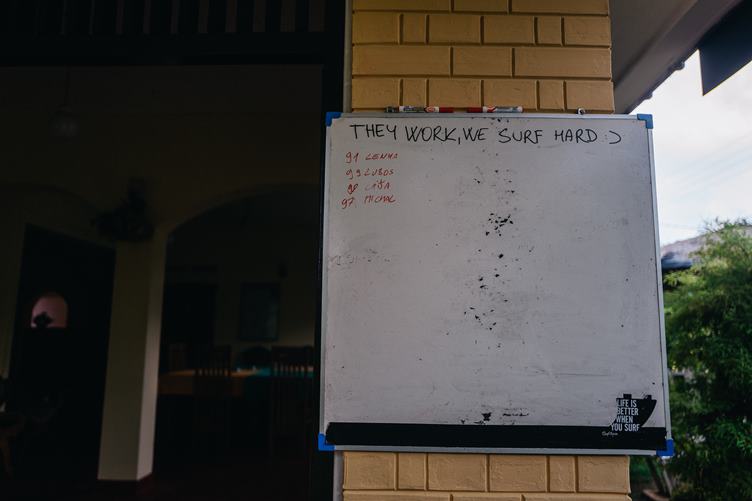 THEY WORK, WE SURF HARD :)
91 LENKA
93 LUBOS
98
97 MICHAL
LIFE IS
BETTER
WHEN
YOU SURF